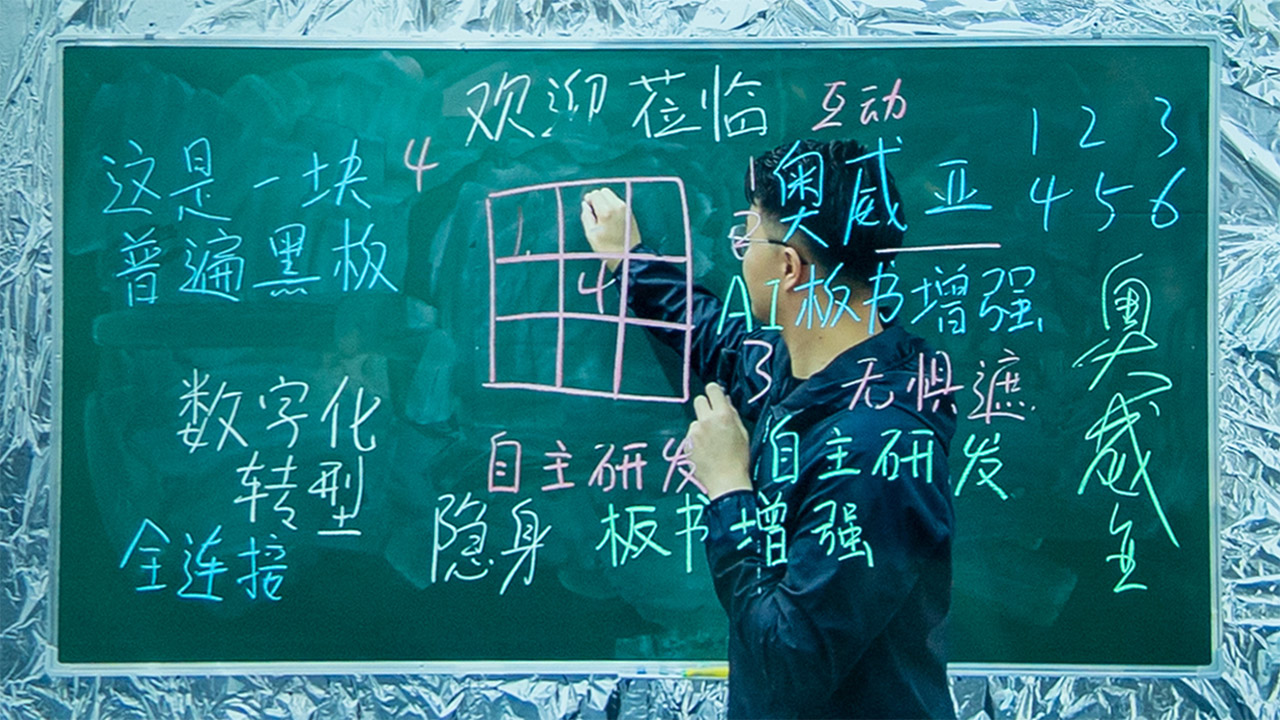 欢迎莅临 互动
1 2 3
4 5 6
这是一块
普遍黑板
4
4
1 奥威亚
2
AI板书增强
3 无惧遮
数字化
转型
全连接
自主研发
自主研发
隐身 板书增强
奥威亚